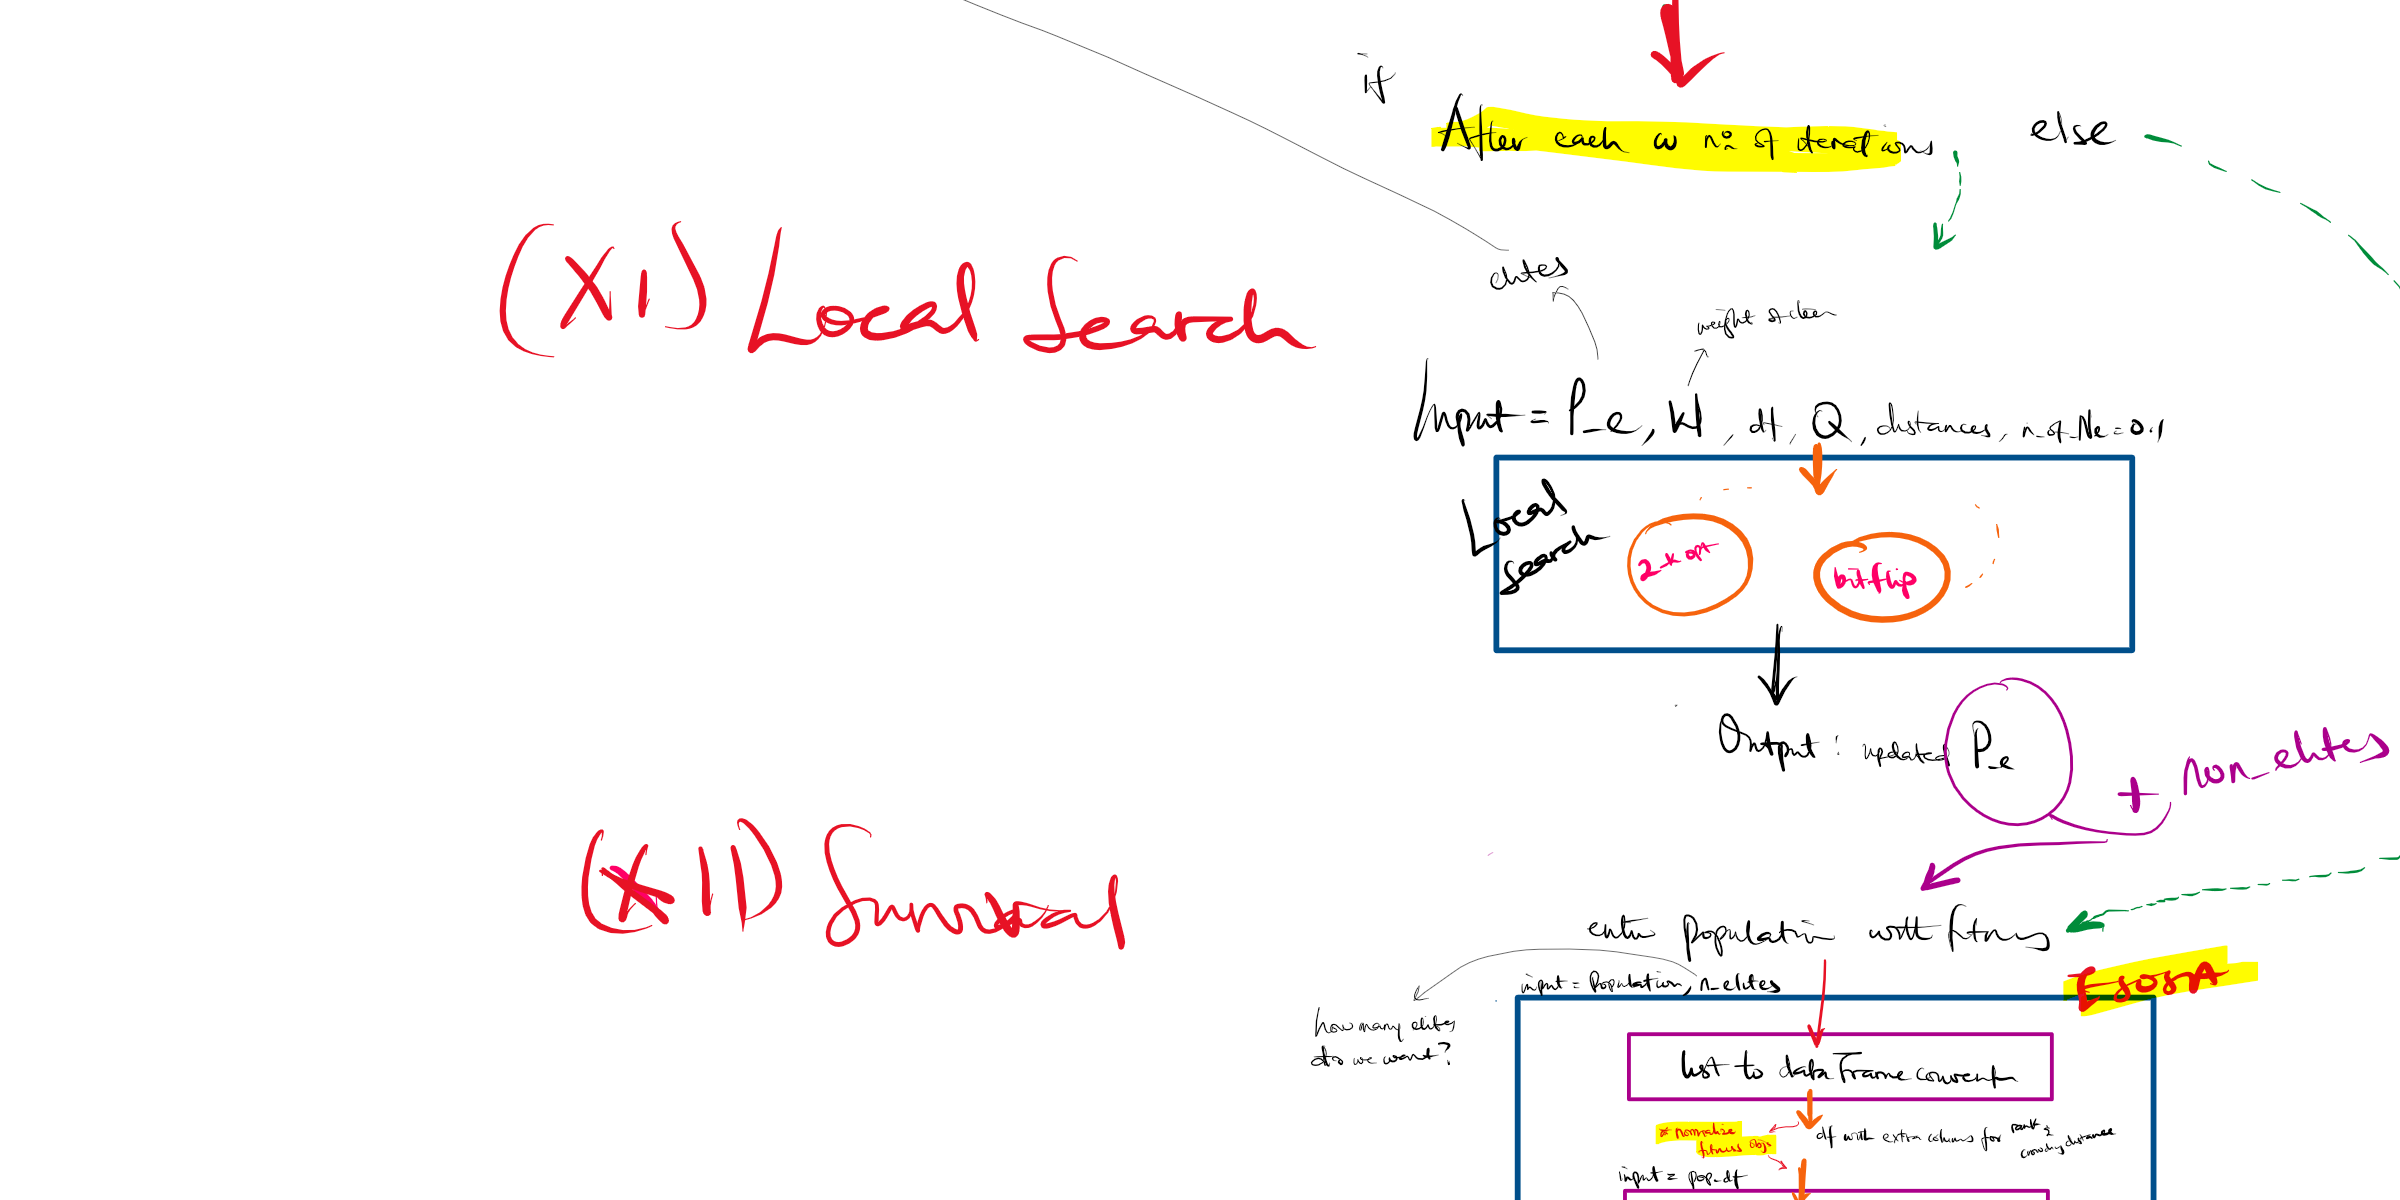 if
After each ω nº of iterations
else
(XI) Local Search
elites
weight of clean
Input = P_e, W, df, Q, distances, n_of_Ne = 0.1
Local
Search
2-k opt
bitflip
Output : updated P_e
+ non_elites
(XII) Survival
entire population with fitness
input = Population, n_elites
how many elites
do we want?
list to dataFrame converter
* normalize
fitness objs
df with extra columns for rank &
crowding distance
input = pop_df